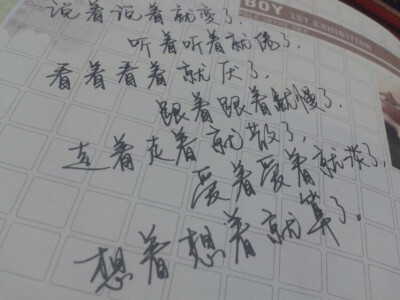 说着说着就变了,
BOY 1ST EXHIBITION
听着听着就倦了,
看着看着就厌了,
跟着跟着就慢了,
走着走着就散了,
爱着爱着就淡了,
想着想着就算了.